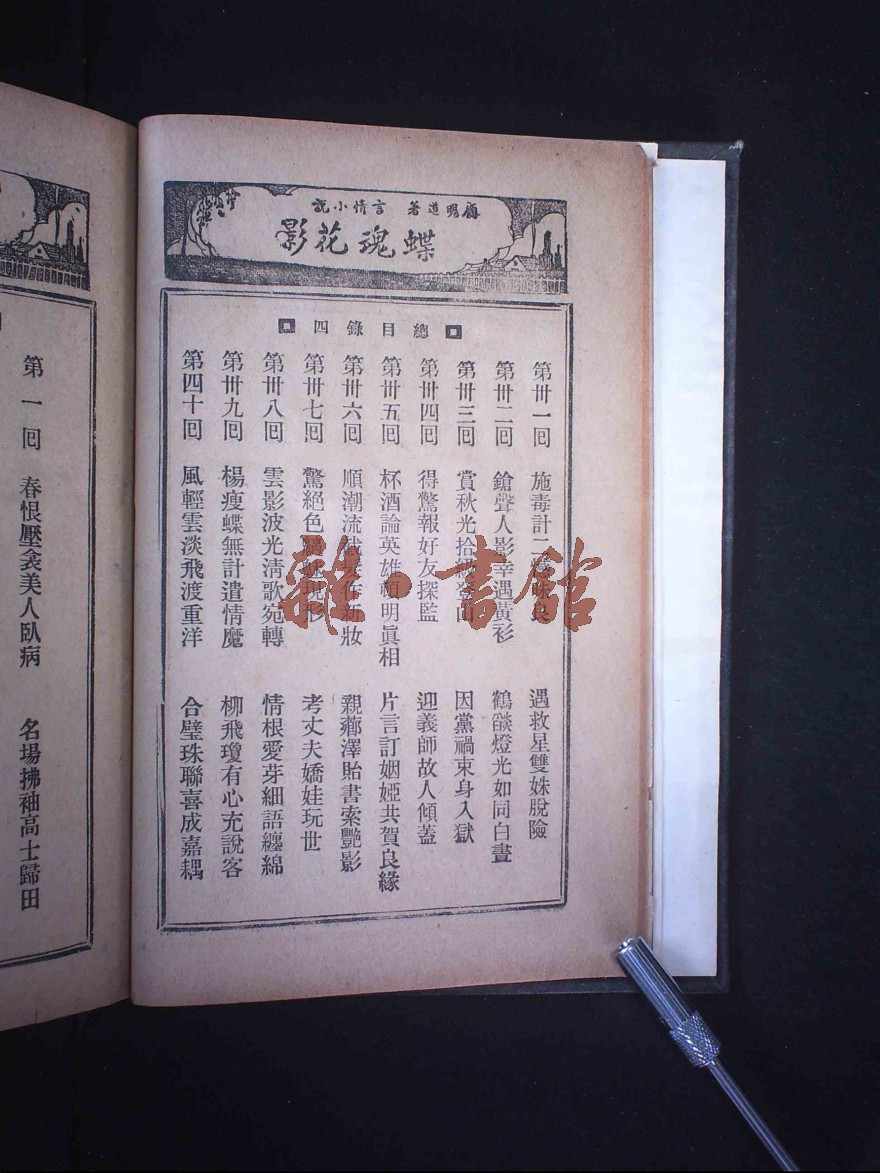 顧明道著 言情小說
蝶魂花影
總目錄四
第卅一回 施毒計二 遇救星雙姝脫險
第卅二回 鎗聲人影幸遇黃衫 鶴燄燈光如同白晝
第卅三回 賞秋光拾 因黨禍束身入獄
第卅四回 得驚報好友探監 迎義師故人傾蓋
第卅五回 杯酒論英雄頓明眞相 片言訂姻婭共賀良緣
第卅六回 順潮流 作新妝 親薌澤貽書索艷影
第卅七回 驚絕色 現形 考丈夫嬌娃玩世
第卅八回 雲影波光淸歌宛轉 情根愛芽細語纏綿
第卅九回 楊瘦蝶無計遣情魔 柳飛瓊有心充說客
第四十回 風輕雲淡飛渡重洋 合璧珠聯喜成嘉耦
第一回 春恨壓衾美人臥病 名場拂袖高士歸田
雜·書館